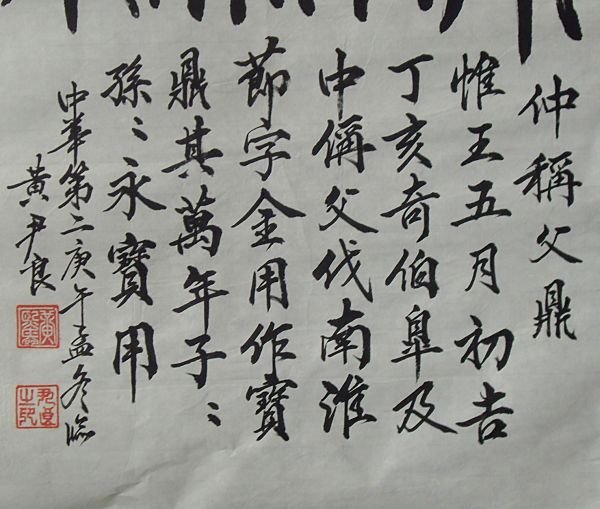 仲稱父鼎
惟王五月初吉
丁亥奇伯臯及
中偁父伐南淮
節字金用作寶
鼎其萬年子〻
孫〻永寶用
中華第二庚午孟冬臨
黃尹良